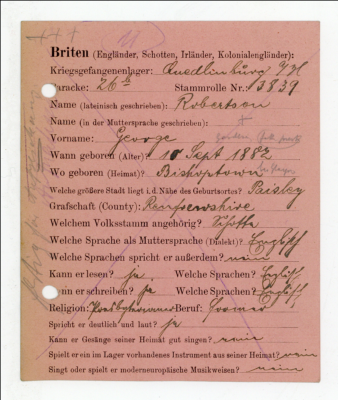 Briten (Engländer, Schotten, Irländer, Kolonialengländer):
Kriegsgefangenenlager: Quedlinburg
Baracke: 26a Stammrolle Nr.: 13839
Name (lateinisch geschrieben): Robertson
Name (in der Muttersprache geschrieben):
Vorname: George
Wann geboren (Alter)? 10 Sept 1882
Wo geboren (Heimat)? Bishoptown
Welche größere Stadt liegt i. d. Nähe des Geburtsortes? Paisley
Grafschaft (County): Renfrewshire
Welchem Volksstamm angehörig? Schotte
Welche Sprache als Muttersprache (Dialekt)? Englisch
Welche Sprachen spricht er außerdem? nein
Kann er lesen? ja Welche Sprachen? Englisch
Kann er schreiben? ja Welche Sprachen? Englisch
Religion: Presbyterianer Beruf:
Spricht er deutlich und laut? ja
Kann er Gesänge seiner Heimat gut singen? nein
Spielt er ein im Lager vorhandenes Instrument aus seiner Heimat? nein
Singt oder spielt er moderneuropäische Musikweisen? nein